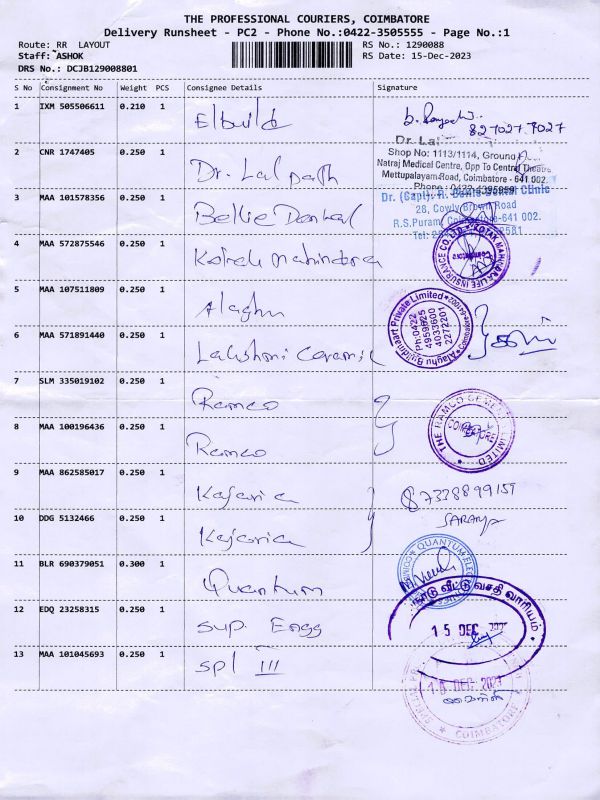 THE PROFESSIONAL COURIERS, COIMBATORE
Delivery Runsheet - PC2 - Phone No.:0422-3505555 - Page No.:1
Route: RR LAYOUT
RS No.: 1290088
Staff: ASHOK
RS Date: 15-Dec-2023
DRS No.: DCJB129008801
S No Consignment No Weight PCS Consignee Details Signature
1 IXM 505506611 0.210 1 Elbuild
827027 7027
2 CNR 1747405 0.250 1 Dr. Lal path
Dr. Lal
Shop No: 1113/1114, Ground
Natraj Medical Centre, Opp To Central Theatre
Mettupalayam Road, Coimbatore - 641 002.
Phone : 0422-4395859
3 MAA 101578356 0.250 1 Bellie Dental
Dr. (Capt). Clinic
28, Cowly Brown Road
R.S.Puram, Coimbatore-641 002.
4 MAA 572875546 0.250 1 Kotak Mahindra
KOTAK MAHINDRA LIFE INSURANCE CO. LTD.
5 MAA 107511809 0.250 1 Alaghu
Alaghu Buildmaart Private Limited
Ph:0422
4959525
4033600
2272201
6 MAA 571891440 0.250 1 Lakshmi Ceramic
7 SLM 335019102 0.250 1 Ramco
8 MAA 100196436 0.250 1 Ramco
THE RAMCO CEMENTS LIMITED
COIMBATORE
9 MAA 862585017 0.250 1 Kajaria
7338899159
10 DDG 5132466 0.250 1 Kajaria
SARANYA
11 BLR 690379051 0.300 1 Quantum
QUANTUM
12 EDQ 23258315 0.250 1 Sup. Engg
நாடு வீட்டு வசதி வாரியம்
15 DEC
13 MAA 101045693 0.250 1 Spl III
DEC 2023
COIMBATORE